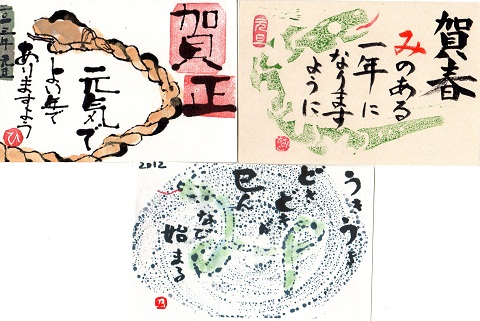 賀正
元気で
よい年で
ありますよう
ひ
賀春
みのある
一年に
なります
ように
元旦
2012
うきうき
どき
どき
巳ん
なで
始まる